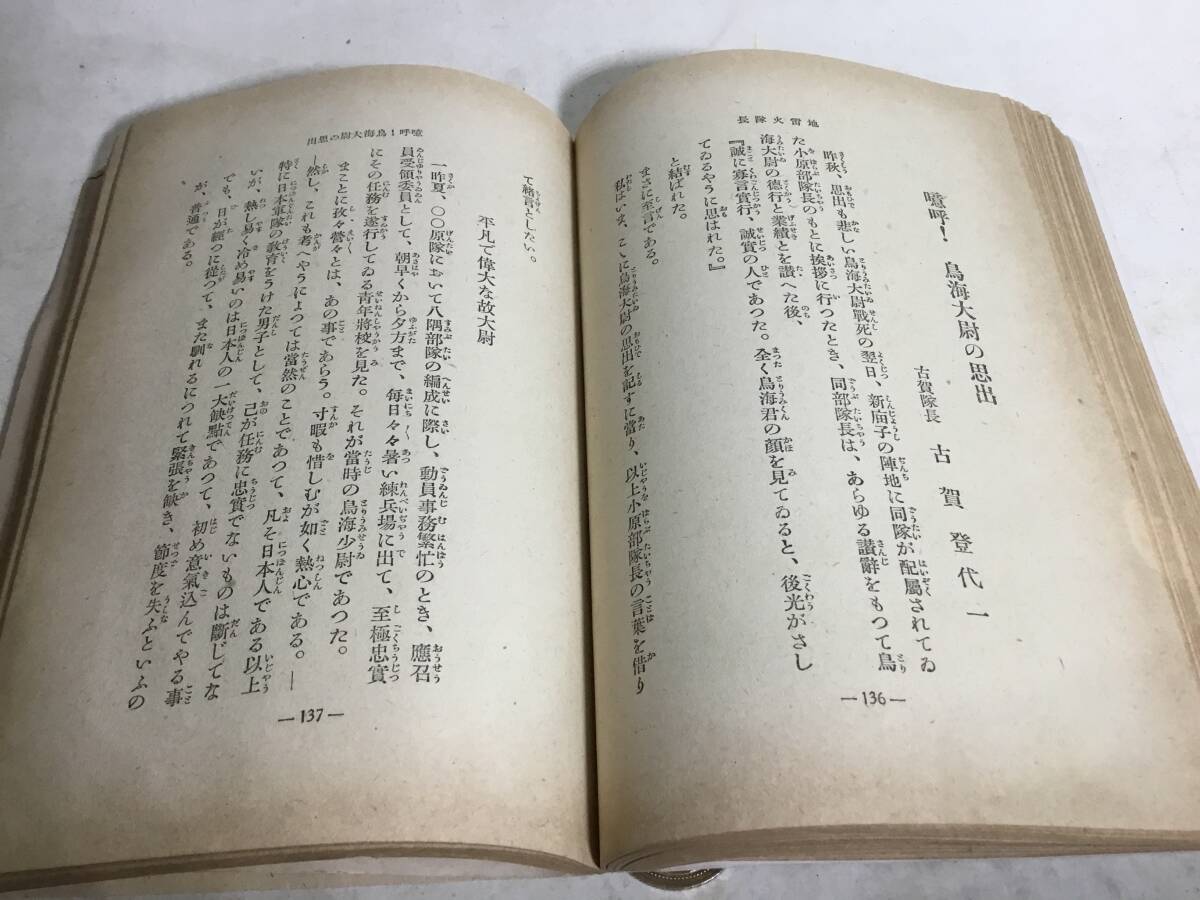 地雷火隊長
噫呼！　鳥海大尉の思出
古賀隊長　古賀登代一
昨秋、思出も悲しい鳥海大尉戰死の翌日、新庙子の陣地に同隊が配屬されてゐ
た小原部隊長のもとに挨拶に行つたとき、同部隊長は、あらゆる讃辭をもつて鳥
海大尉の德行と業績とを讃へた後、
『誠に寡言實行、誠實の人であつた。全く鳥海君の顏を見てゐると、後光がさし
てゐるやうに思はれた。』
と結ばれた。
まさに至言である。
私はいま、こゝに鳥海大尉の思出を記すに當り、以上小原部隊長の言葉を借り
―136―
噫呼！鳥海大尉の思出
て緒言としたい。
平凡で偉大な故大尉
一昨夏、〇〇原隊において八隅部隊の編成に際し、動員事務繁忙のとき、應召
員受領委員として、朝早くから夕方まで、毎日々々暑い練兵場に出て、至極忠實
にその任務を遂行してゐる青年將校を見た。それが當時の鳥海少尉であつた。
まことに孜々營々とは、あの事であらう。寸暇も惜しむが如く熱心である。―
―然し、これも考へやうによつては當然のことであつて、凡そ日本人である以上
特に日本軍隊の敎育をうけた男子として、己が任務に忠實でないものは斷じてな
いが、熱し易く冷め易いのは日本人の一大缺點であつて、初め意氣込んでやる事
でも、日が經つに從つて、また馴れるにつれて緊張を缺き、節度を失ふといふの
が、普通である。
―137―